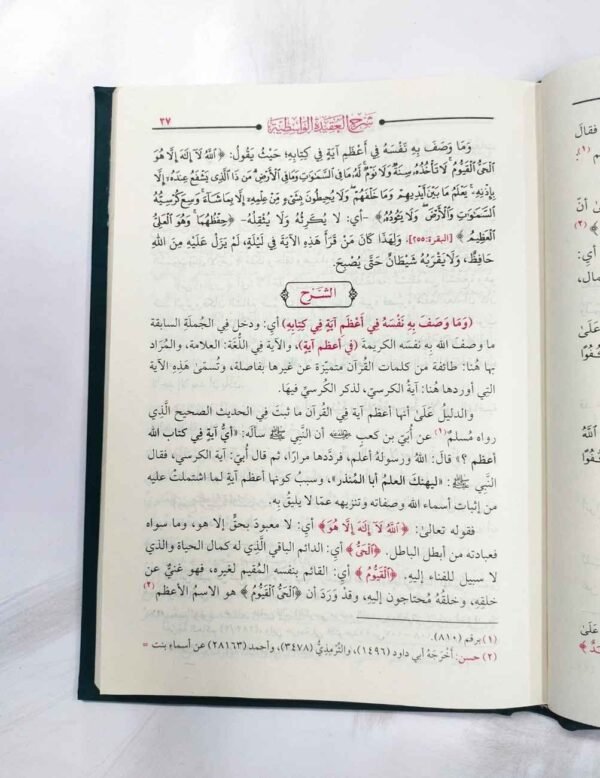 شرح العقيدة الواسطية ٢٧
وَمَا وَصَفَ بِهِ نَفْسَهُ فِي أَعْظَمِ آيَةٍ فِي كِتَابِهِ؛ حَيْثُ يَقُولُ: ﴿اللَّهُ لَا إِلَهَ إِلَّا هُوَ
الْحَيُّ الْقَيُّومُ لَا تَأْخُذُهُ سِنَةٌ وَلَا نَوْمٌ لَهُ مَا فِي السَّمَاوَاتِ وَمَا فِي الْأَرْضِ مَن ذَا الَّذِي يَشْفَعُ عِندَهُ إِلَّا
بِإِذْنِهِ يَعْلَمُ مَا بَيْنَ أَيْدِيهِمْ وَمَا خَلْفَهُمْ وَلَا يُحِيطُونَ بِشَيْءٍ مِّنْ عِلْمِهِ إِلَّا بِمَا شَاءَ وَسِعَ كُرْسِيُّهُ
السَّمَاوَاتِ وَالْأَرْضَ وَلَا يَئُودُهُ﴾ -أَي: لَا يُكْرِثُهُ وَلَا يُثْقِلُهُ- ﴿حِفْظُهُمَا وَهُوَ الْعَلِيُّ
الْعَظِيمُ﴾ [البقرة: ٢٥٥]، وَلِهَذَا كَانَ مَنْ قَرَأَ هَذِهِ الآيَةَ فِي لَيْلَةٍ، لَمْ يَزَلْ عَلَيْهِ مِنَ اللَّهِ
حَافِظٌ، وَلَا يَقْرَبُهُ شَيْطَانٌ حَتَّى يُصْبِحَ.
الشَّرْح
(وَمَا وَصَفَ بِهِ نَفْسَهُ فِي أَعْظَمِ آيَةٍ فِي كِتَابِهِ) أي: ودخل في الجُملةِ السابقة
ما وصفَ الله به نفسَه الكريمةَ (في أعظم آية)، والآية فِي اللُّغَة: العلامة، والمُرَاد
بِهَا هُنَا: طائفة من كلمات القُرآن متميّزة عن غيرها بفاصلة، وتُسمّى هَذِهِ الآية
التي أوردها هُنَا: آيةُ الكرسيّ، لذكر الكُرسيّ فيهَا.
والدليلُ عَلَىٰ أنها أعظم آية فِي القُرآن ما ثبتَ فِي الحديث الصحيح الَّذِي
رواه مُسلمٌ (١) عن أُبَيّ بن كعبٍ رضي الله عنه أن النبي ﷺ سأله: «أيُّ آيةٍ في كتاب الله
أعظم؟» قال: اللهُ ورسولُهُ أعلَم، فردَّدها مرارًا، ثم قال أُبيّ: آيةُ الكرسي، فقال
النَّبِي ﷺ: «ليهنكَ العلمُ أبا المُنذر»، وسببُ كونها أعظم آية لما اشتملتْ عليه
من إثبات أسماء الله وصفاته وتنزيهه عمّا لا يليقُ بِهِ.
فقوله تعالى: ﴿اللَّهُ لَا إِلَهَ إِلَّا هُوَ﴾ أي: لا معبودَ بحقّ إلا هو، وما سواه
فعبادته من أبطل الباطل. ﴿الْحَيُّ﴾ أي: الدائم الباقي الَّذِي له كمال الحياة والذي
لا سبيل للفناء إليه. ﴿الْقَيُّومُ﴾ أي: القائم بنفسه المُقيم لغيره، فهو غنيٌّ عن
خلقِهِ، وخلقُهُ مُحتاجون إليهِ، وقدْ وَرَدَ أن ﴿الْحَيُّ الْقَيُّومُ﴾ هو الاسمُ الأعظم (٢)
(١) برقم (٨١٠).
(٢) حسن: أخْرَجَهُ أبي داود (١٤٩٦)، والتِّرْمِذِيُّ (٣٤٧٨)، وأحمد (٢٨١٦٣) عن أسماءَ بنت =
فقال
(١)
أي:
عَلَىٰ
اللَّهُ
عَلَىٰ